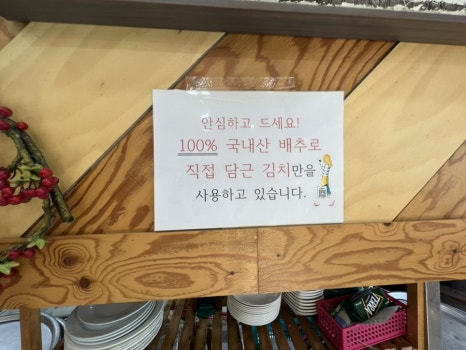 안심하고 드세요!
100% 국내산 배추로
직접 담근 김치만을
사용하고 있습니다.